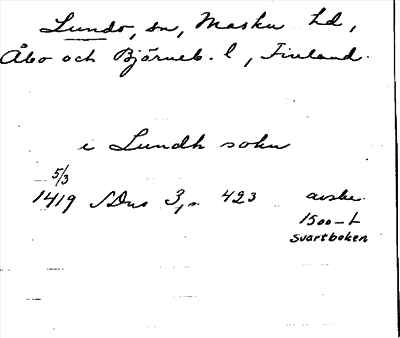 Lundo, sn, Masku hd,
Åbo och Björneb. l, Finland.
i Lundh sokn
5/3
1419 SDns 3, s. 423 avskr.
1500-t
Svartboken